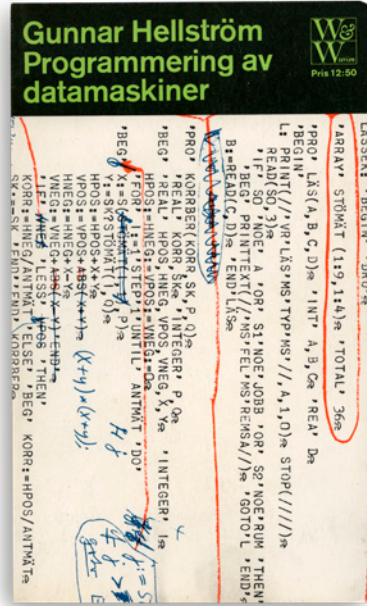 Gunnar Hellström
Programmering av
datamaskiner
W&W
Pris 12:50
'ARRAY' STÖMÄT (1:9,1:4)¤ 'TOTAL' 36¤
'PRO' LÄS(A,B,C,D)¤ 'INT' A,B,C¤ 'REA' D¤
'BEGIN'
L: PRINT(//'VR'LÄS'MS'TYP'MS'//,A,1,0)¤ STOP(////)¤
READ(SO,3)¤
'IF' SO'NOE' A 'OR' S1'NOE'JOBB 'OR' S2'NOE'RUM 'THEN'
'BEG' PRINTTEXT(//'MS'FEL'MS'REMSA//)¤ 'GOTO'L 'END'¤
B:=READ(C,D)¤ 'END'LÄS¤
'PRO' KORRBER(KORR,SK,P,Q)¤
'REAL' KORR,SK¤ 'INTEGER' P,Q¤
'BEG' 'REAL' HPOS,HNEG,VPOS,VNEG,X,Y¤ 'INTEGER' I¤
HPOS:=HNEG:=VPOS:=VNEG:=0¤
'FOR' I:=1'STEP'1'UNTIL' ANTMÄT 'DO'
'BEG' X:=S P)¤
Y:=SK?STÖMÄT(I,Q)¤
HPOS:=HPOS+X+Y¤
VPOS:=VPOS+ABS(X+Y)¤ (x+y)*(x+y);
HNEG:=HNEG+X-Y¤
VNEG:=VNEG+ABS(X-Y) 'END'¤
'IF' 'LESS' VPOS 'THEN'
KORR:=HNEG/ANTMÄT 'ELSE' 'BEG' KORR:=HPOS/ANTMÄT¤
SK:=-SK 'END' 'END' KORRBER¤